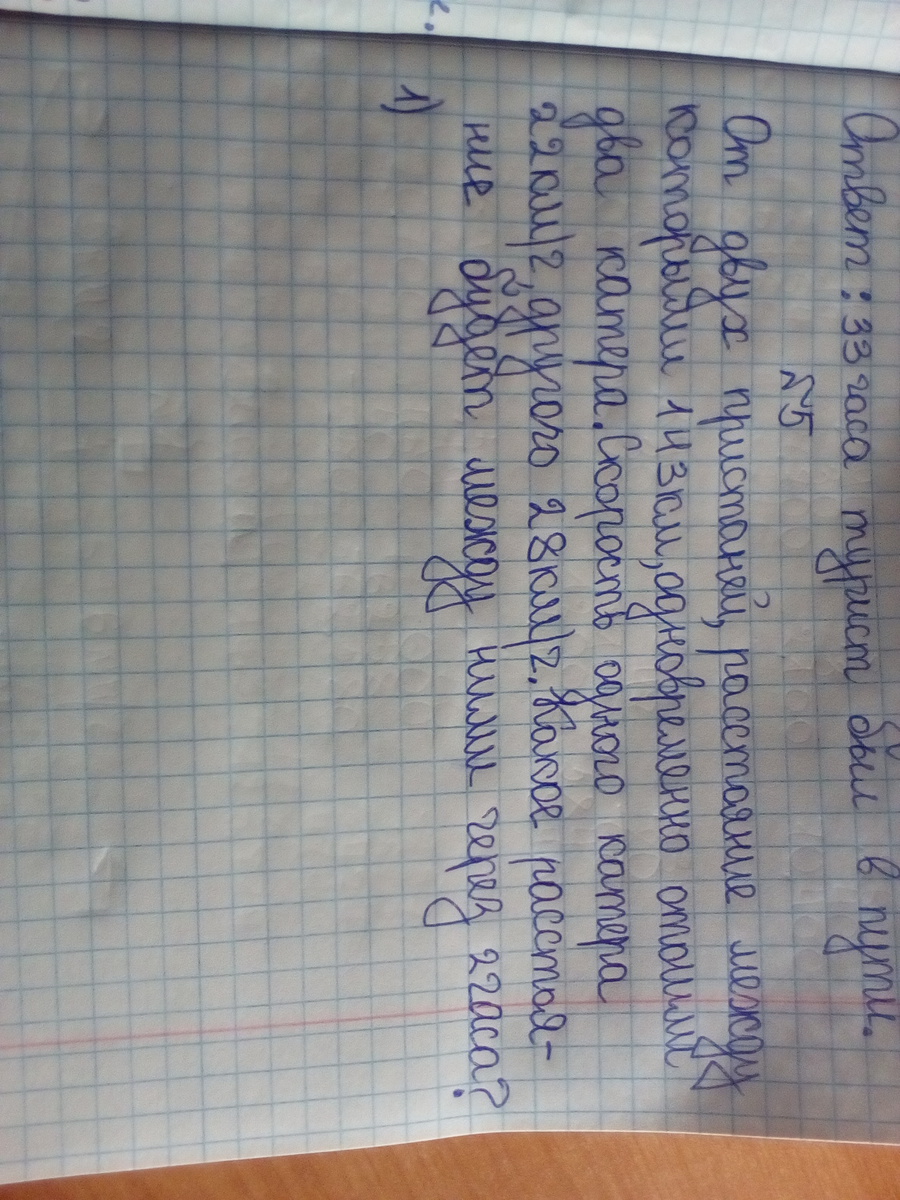 Ответ: 33 часа турист был в пути.
№5
От двух пристаней, расстояние между
которыми 143км, одновременно отошли
два катера. Скорость одного катера
22км/ч, другого 28км/ч. Какое расстоя-
ние будет между ними через 2часа?
1)